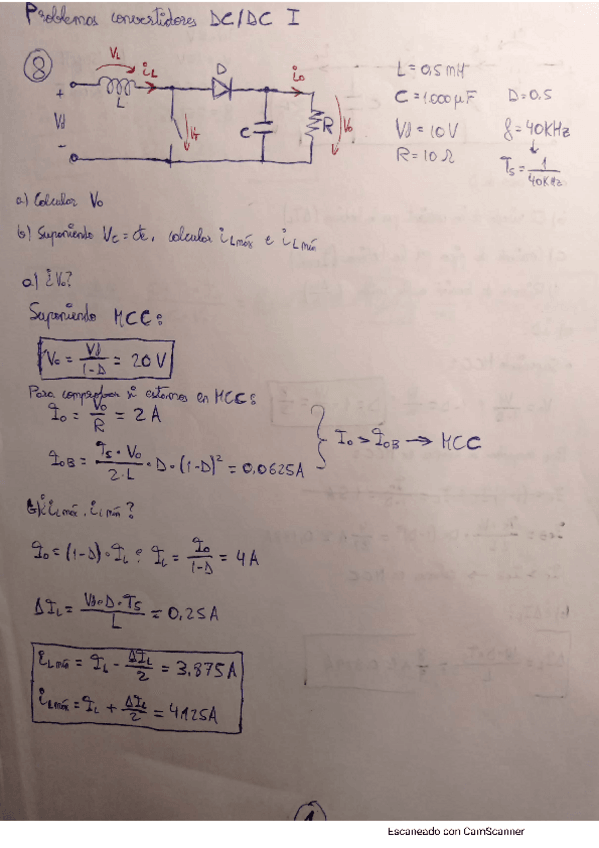 Problemas convertidores DC/DC I
8
VL iL D io
L
+ Vd -
C R Vo
L = 0,5 mH
C = 1.000 µF D = 0.5
Vd = 10 V f = 40KHz
R = 10 Ω Ts = 1/40KHz
a) Calcular Vo
b) Suponiendo Vc = cte, calcular iLmáx e iLmín
a) ¿Vo?
Suponiendo MCC:
Vo = Vd/(1-D) = 20 V
Para comprobar si estamos en MCC:
Io = Vo/R = 2 A
Io > IoB → MCC
IoB = Ts · Vo/(2·L) · D · (1-D)² = 0,0625A
b) ¿iLmáx, iLmín?
Io = (1-D) · IL ; IL = Io/(1-D) = 4 A
ΔIL = Vd·D·Ts/L = 0,25A
iLmín = IL - ΔIL/2 = 3,875A
iLmáx = IL + ΔIL/2 = 4,125A
1
Escaneado con CamScanner